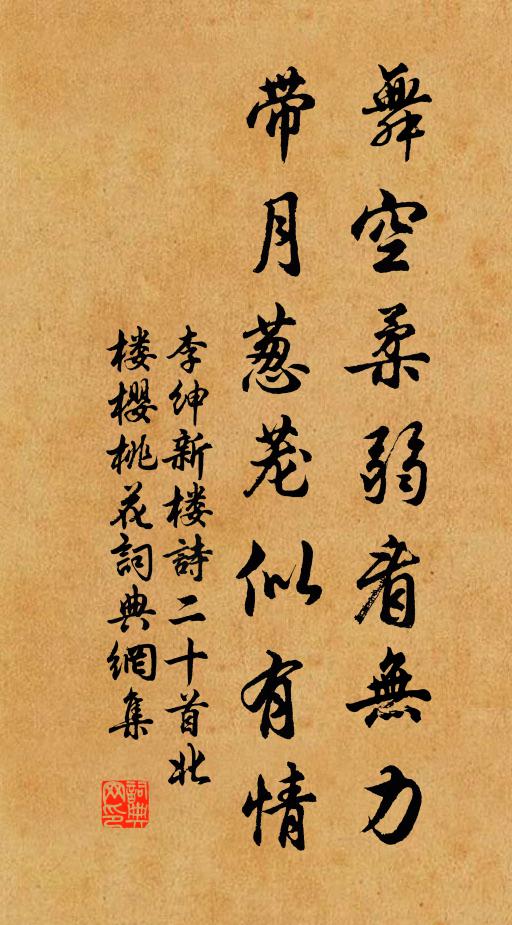 舞空柔弱看無力
带月葱蘢似有情
李紳新楼詩二十首北
楼櫻桃花詞典網集
詞典网印